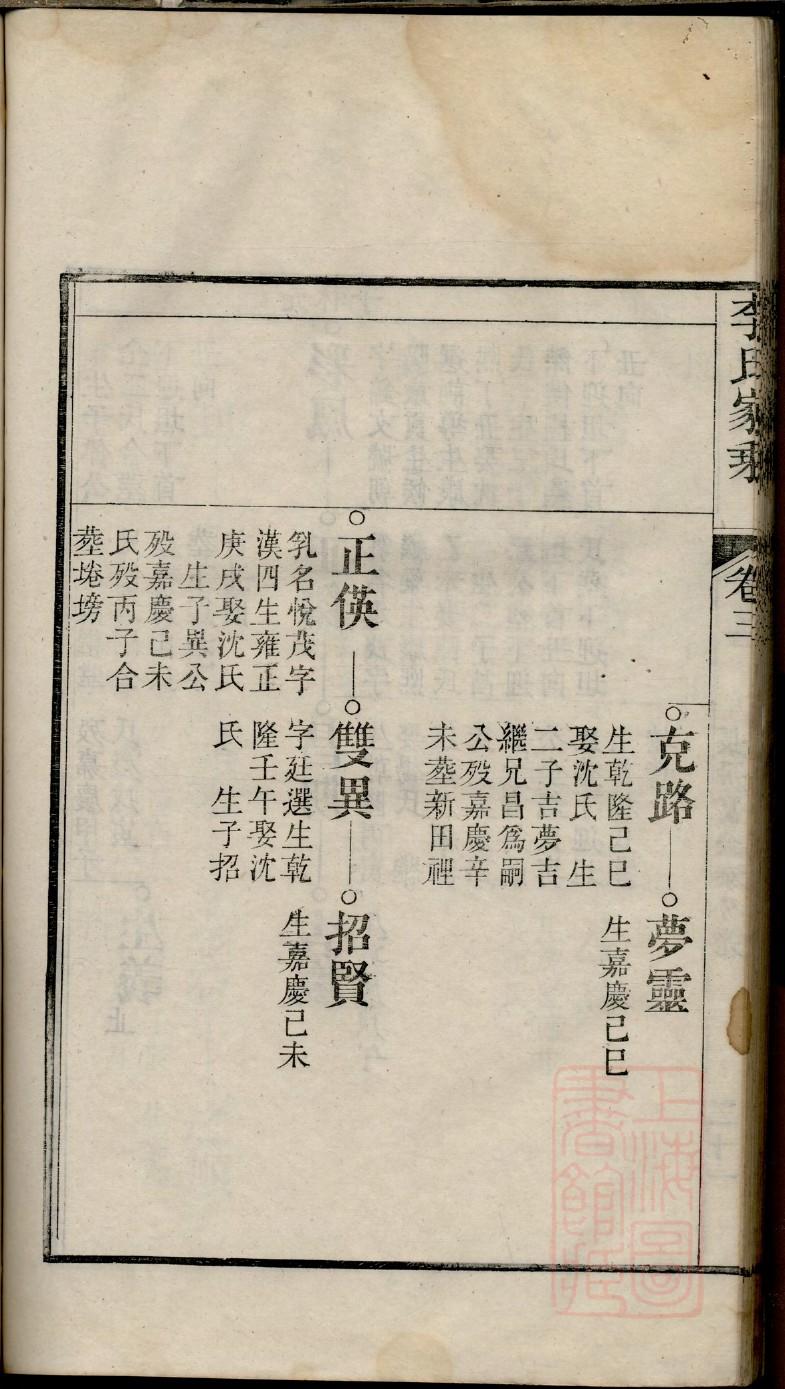 李氏家乘
卷三
克路
生乾隆己巳
娶沈氏 生
二子吉夢吉
繼兄昌爲嗣
公殁嘉慶辛
未塟新田裡
夢靈
生嘉慶己巳
正偀
乳名悅茂字
漢四生雍正
庚戌娶沈氏
生子異公
殁嘉慶己未
氏殁丙子合
塟埢塝
雙異
字廷選生乾
隆壬午娶沈
氏 生子招
招賢
生嘉慶己未
上海圖
書館藏